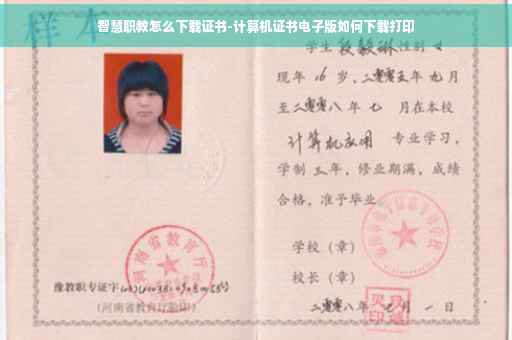 智慧职教怎么下载证书-计算机证书电子版如何下载打印
样本
学生 段毅琳 性别 女
现年 16 岁，二零零五年 九月
至二零零八年 七 月在本校
计算机应用 专业学习，
学制 三 年，修业期满，成绩
合格，准予毕业。
学校（章）
校长（章）
河南省教育厅
豫教职专证字
（河南省教育厅验印）
二零零八年 七 月 一 日